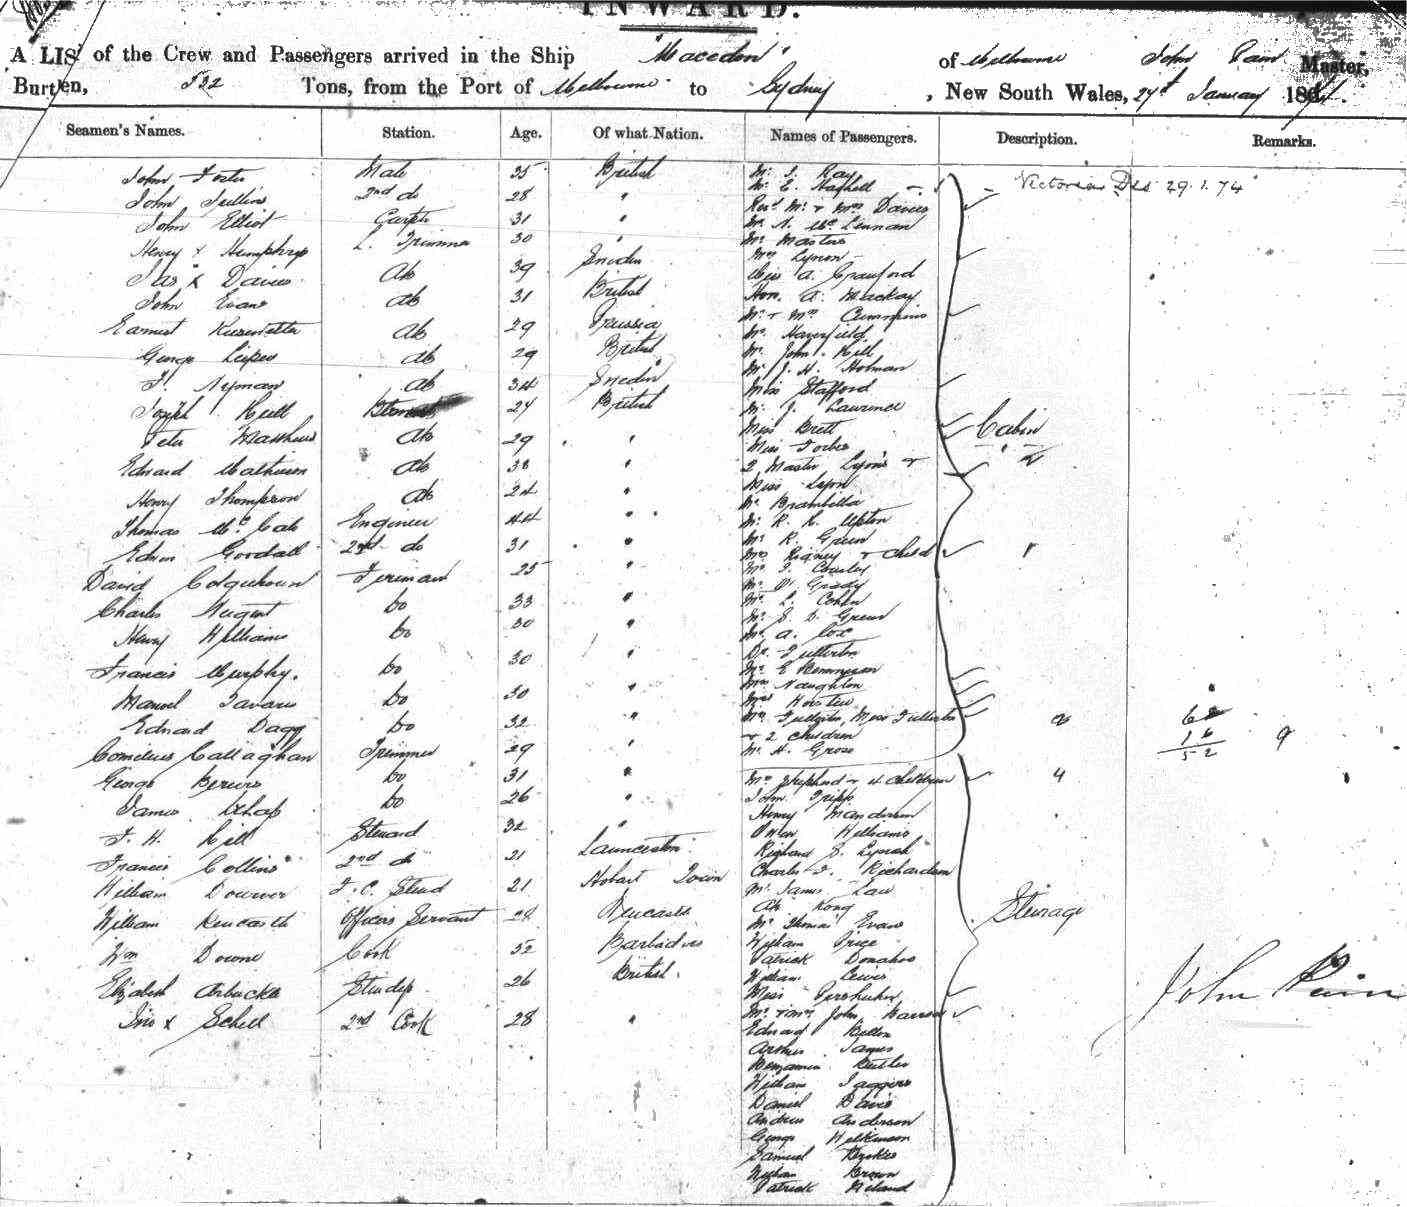 INWARD.
A LIS of the Crew and Passengers arrived in the Ship "Macedon" of Melbourne John Pain Master,
Burthen, 532 Tons, from the Port of Melbourne to Sydney, New South Wales, 24th January 187
Seamen's Names. Station. Age. Of what Nation. Names of Passengers. Description. Remarks.
John Foster Mate 35 British Mr. J. Ray
2nd do 28 " Mr. E. Haskell Victorian Dss 29.1.74
John Elliot Carptr 31 " Revd Mr. & Mrs Davies
Henry Humphreys L. Trimmer 30 " Mr. N. McLennan
Davies AB 39 Sweden Mr Masters
John Evans AB 31 British Mrs Lyron
Earnest AB 29 Prussia Miss A. Crawford
George AB 29 British Hon. A. Mackay
Nyman AB 34 Sweden Mr & Mrs Cummins
Joseph Hull 27 British Mr Haverfield
Peter Matthews AB 29 " Mr John Hill
Edward Mathieson AB 38 " Mr J. H. Holman
Henry Thompson AB 24 " Miss Stafford
Thomas McCabe Engineer 44 " Mr. J. Lawrence
Edwin Goodall 2nd do 31 " Miss Brett Cabin
David Colquhoun Fireman 25 " Miss Forbes
Charles Nugent Do 33 " 2 Master Lyons &
Henry Williams Do 30 " Miss Lyon
Francis Murphy. Do 30 " Mr Brambilla
Manuel Tavares Do 30 " Mr. R. R. Upton
Edward Dagg Do 32 " Mr R. Green
Cornelius Callaghan Trimmer 29 " Mrs Rigney & Child
George Do 31 " Mr J. Cousley
James Do 26 " Mr O. Grady
F. H. Hill Steward 32 " Mr L. Cohen
Francis Collins 2nd do 21 Launceston Mr. S. D. Green
William F. C. Stewd 21 Hobart Town Mr. A. Cox
William Newcastle Officers Servant 28 Newcastle Dr. Fullerton
Wm Downe Cook 52 Barbadoes Mr. E.
Elizabeth Arbuckle Stewdss 26 British. Mrs Naughton
Schell 2nd Cook 28 " Mrs
Mrs Fullerton, Miss Fullerton 2
& 2 children
Mr. H. Grose
16
52 9
Mrs Shephard & 4 Children 4
John Tripp
Henry Manderson
Owen Williams
Richard J. Lynch
Charles F. Richardson
Mr. James Law
Ah Kong
Mr Thomas Evans Steerage
William Price
Patrick Donahoo
William Lewis
Miss
Mr. & Mrs John John Pain
Edward
Arthur James
Benjamin Butler
William Jaggers
Daniel Davis
Andrew Anderson
George Wilkinson
Samuel
William Brown
Patrick